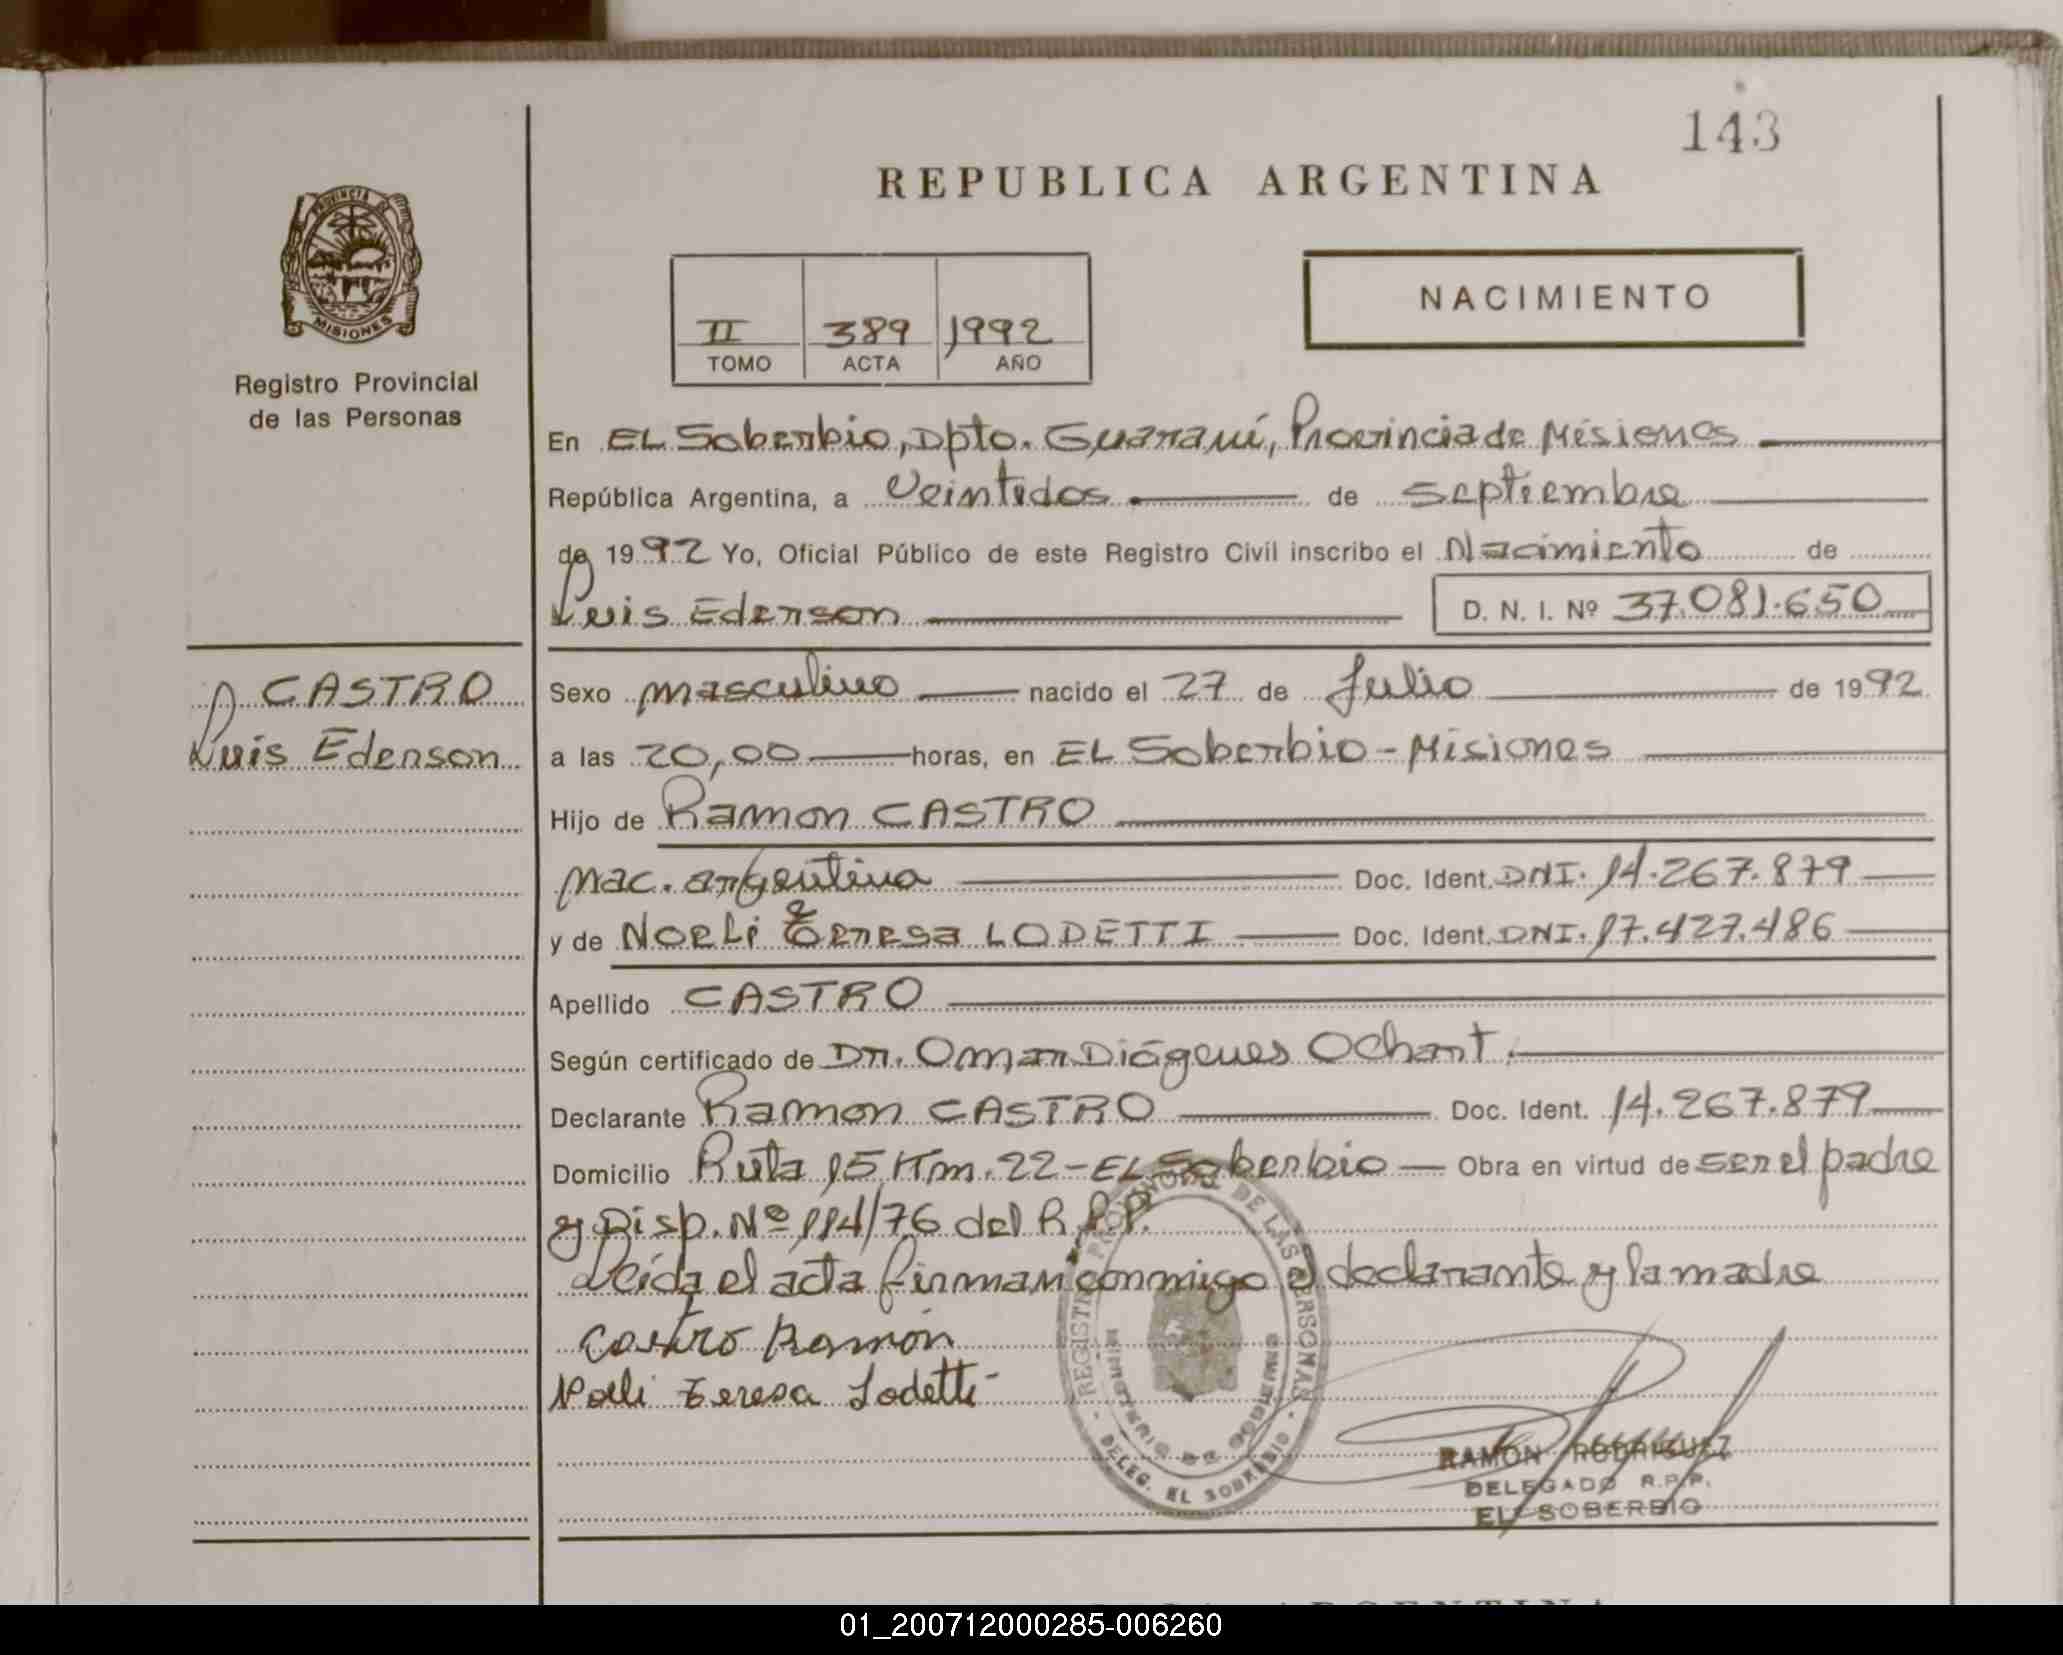 143
REPUBLICA ARGENTINA
PROVINCIA DE
MISIONES
Registro Provincial
de las Personas
II 389 1992
TOMO ACTA AÑO
NACIMIENTO
En EL Soberbio, Dpto. Guaraní, Provincia de Misiones
República Argentina, a Veintidos de Septiembre
de 1992 Yo, Oficial Público de este Registro Civil inscribo el Nacimiento de
Luis Ederson D. N. I. Nº 37.081.650
CASTRO
Luis Ederson
Sexo masculino nacido el 27 de Julio de 1992
a las 20,00 horas, en EL Soberbio - Misiones
Hijo de Ramon CASTRO
Nac. argentina Doc. Ident. DNI. 14.267.879
y de Noeli Teresa LODETTI Doc. Ident. DNI. 17.427.486
Apellido CASTRO
Según certificado de Dr. Omar Diógenes Ochart.
Declarante Ramon CASTRO Doc. Ident. 14.267.879
Domicilio Ruta 15 Km. 22 - EL Soberbio Obra en virtud de ser el padre
y Disp. Nº 114/76 del R.P.P.
Leída el acta firman conmigo el declarante y la madre
Castro Ramón
Noeli Teresa Lodetti
REGISTRO PROVINCIAL DE LAS PERSONAS
MINISTERIO DE GOBIERNO
DELEG. EL SOBERBIO
RAMON RODRIGUEZ
DELEGADO R.P.P.
EL SOBERBIO
01_200712000285-006260